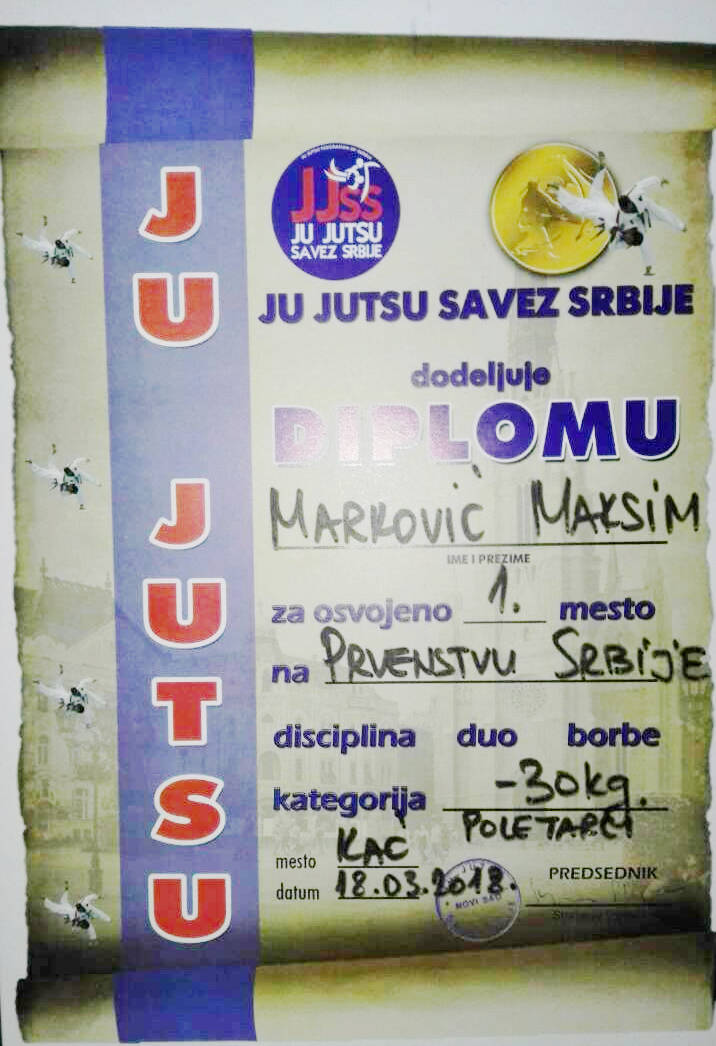 JU JUTSU
JU JUTSU FEDERATION OF SERBIA
JJSS
JU JUTSU
SAVEZ SRBIJE
JU JUTSU SAVEZ SRBIJE
dodeljuje
DIPLOMU
MARKOVIĆ MAKSIM
IME I PREZIME
za osvojeno 1. mesto
na PRVENSTVU SRBIJE
disciplina duo borbe
kategorija -30kg.
POLETARCI
mesto KAĆ
datum 18.03.2018.
NOVI SAD
PREDSEDNIK